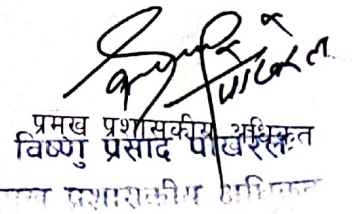 प्रमुख प्रशासकीय अधिकृत
विष्णु प्रसाद पोखरेल
प्रशासकीय अधिकृत